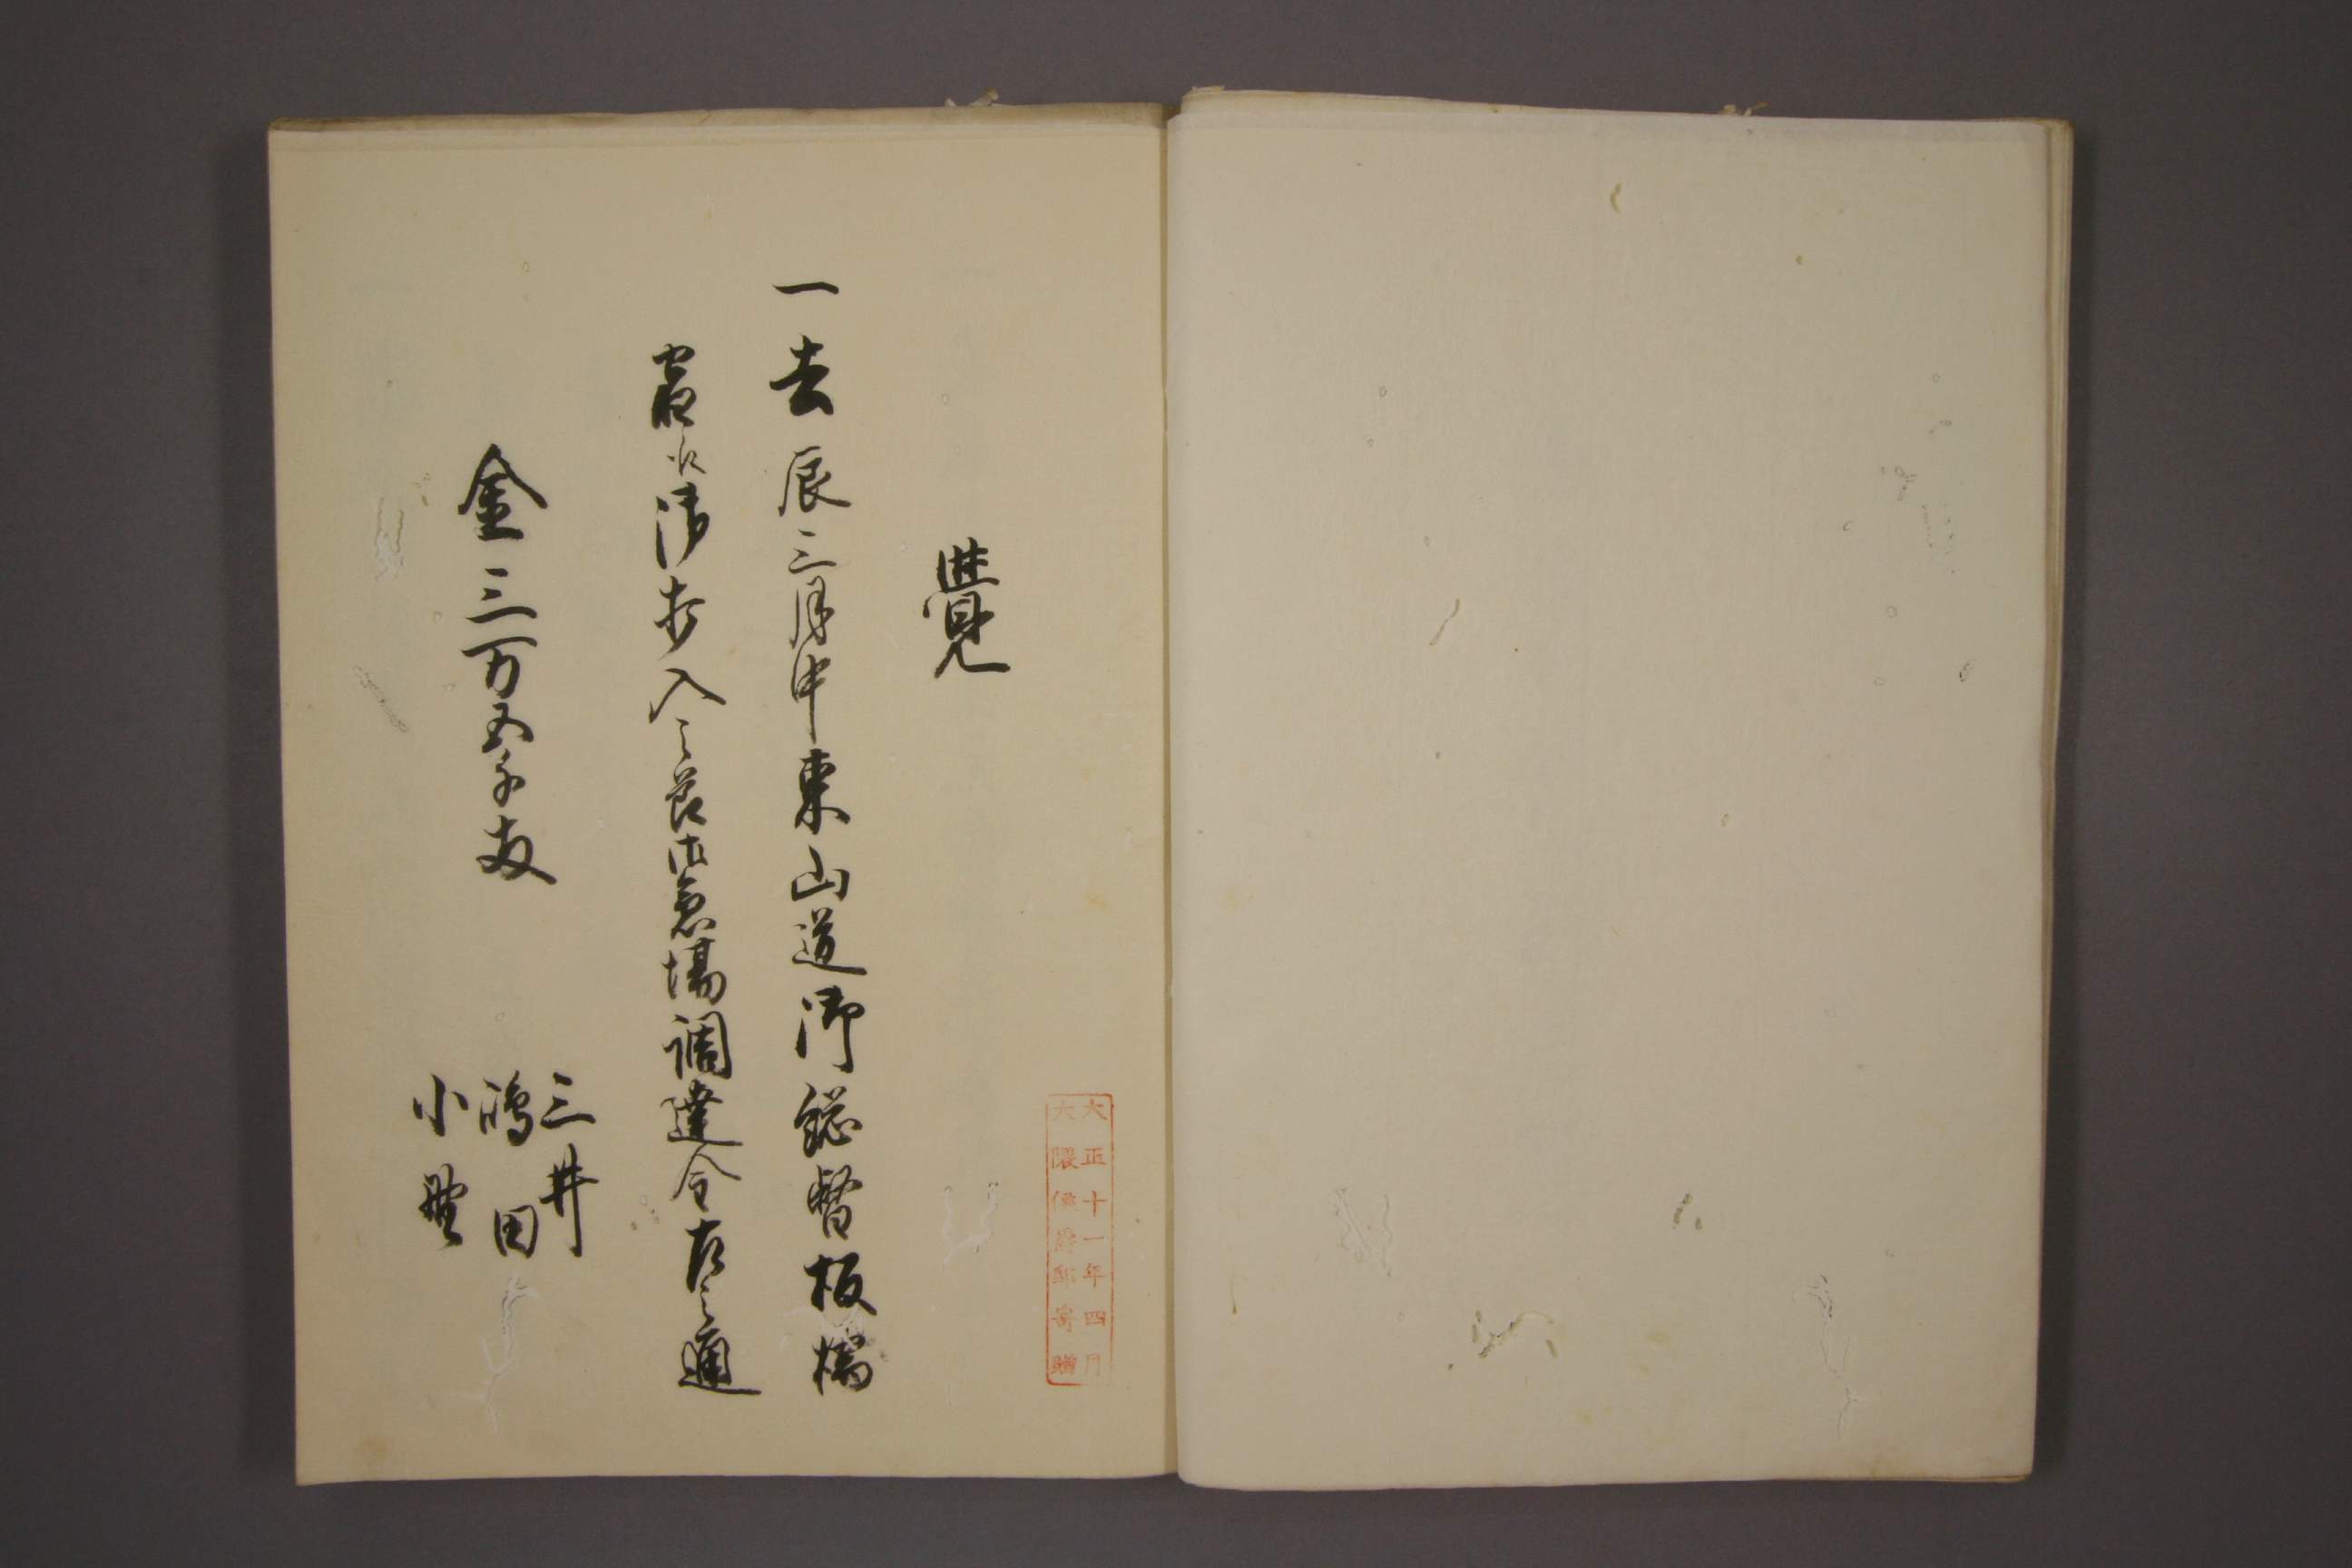 大正十一年四月
大隈侯爵邸寄贈
覺
一去辰三月中東山道御総督板橋
宿江御打入之節御急場調達金左之通
金三万五千両
三井
嶋田
小野